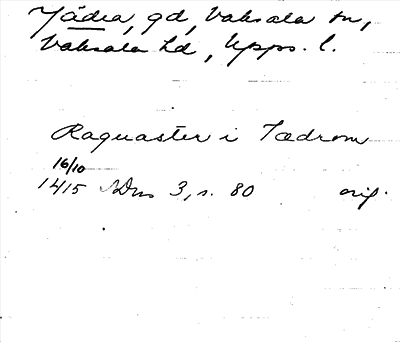 Jädra, gd, Vaksala sn,
Vaksala hd, Upps. l.
Raguaster i Tædrom
16/10
1415 SDns 3, s. 80 orig.